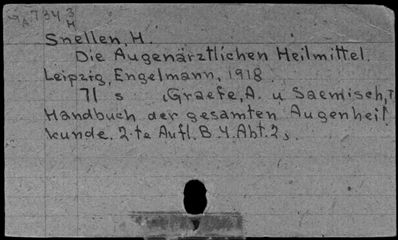 A7343
H
Snellen, H.
Die Augenärztlichen Heilmittel.
Leipzig, Engelmann, 1918.
71 s (Graefe, A. u Saemisch, T
Handbuch der gesamten Augenheil
kunde. 2-te Aufl. B. 4. Abt. 2,